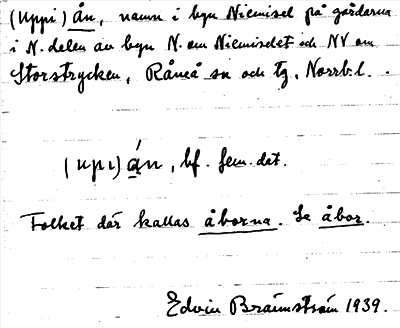 (Uppi) ån, namn i byn Niemisel på gårdarna
i N. delen av byn N. om Niemiselet och NV om
Storstrycken, Råneå sn och tg, Norrb. l.
(upı) án, bf. fem. dat.
Folket där kallas åborna. Se åbor.
Edvin Brännström 1939.